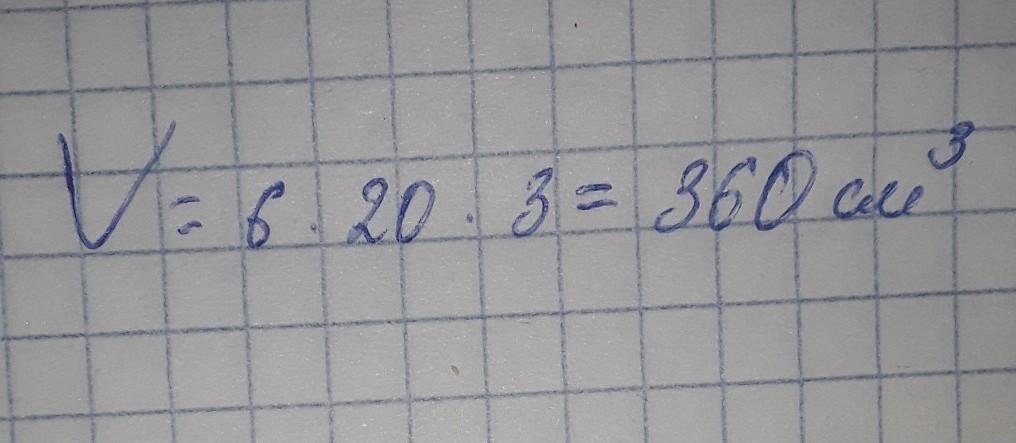 V = 6 · 20 · 3 = 360 см³